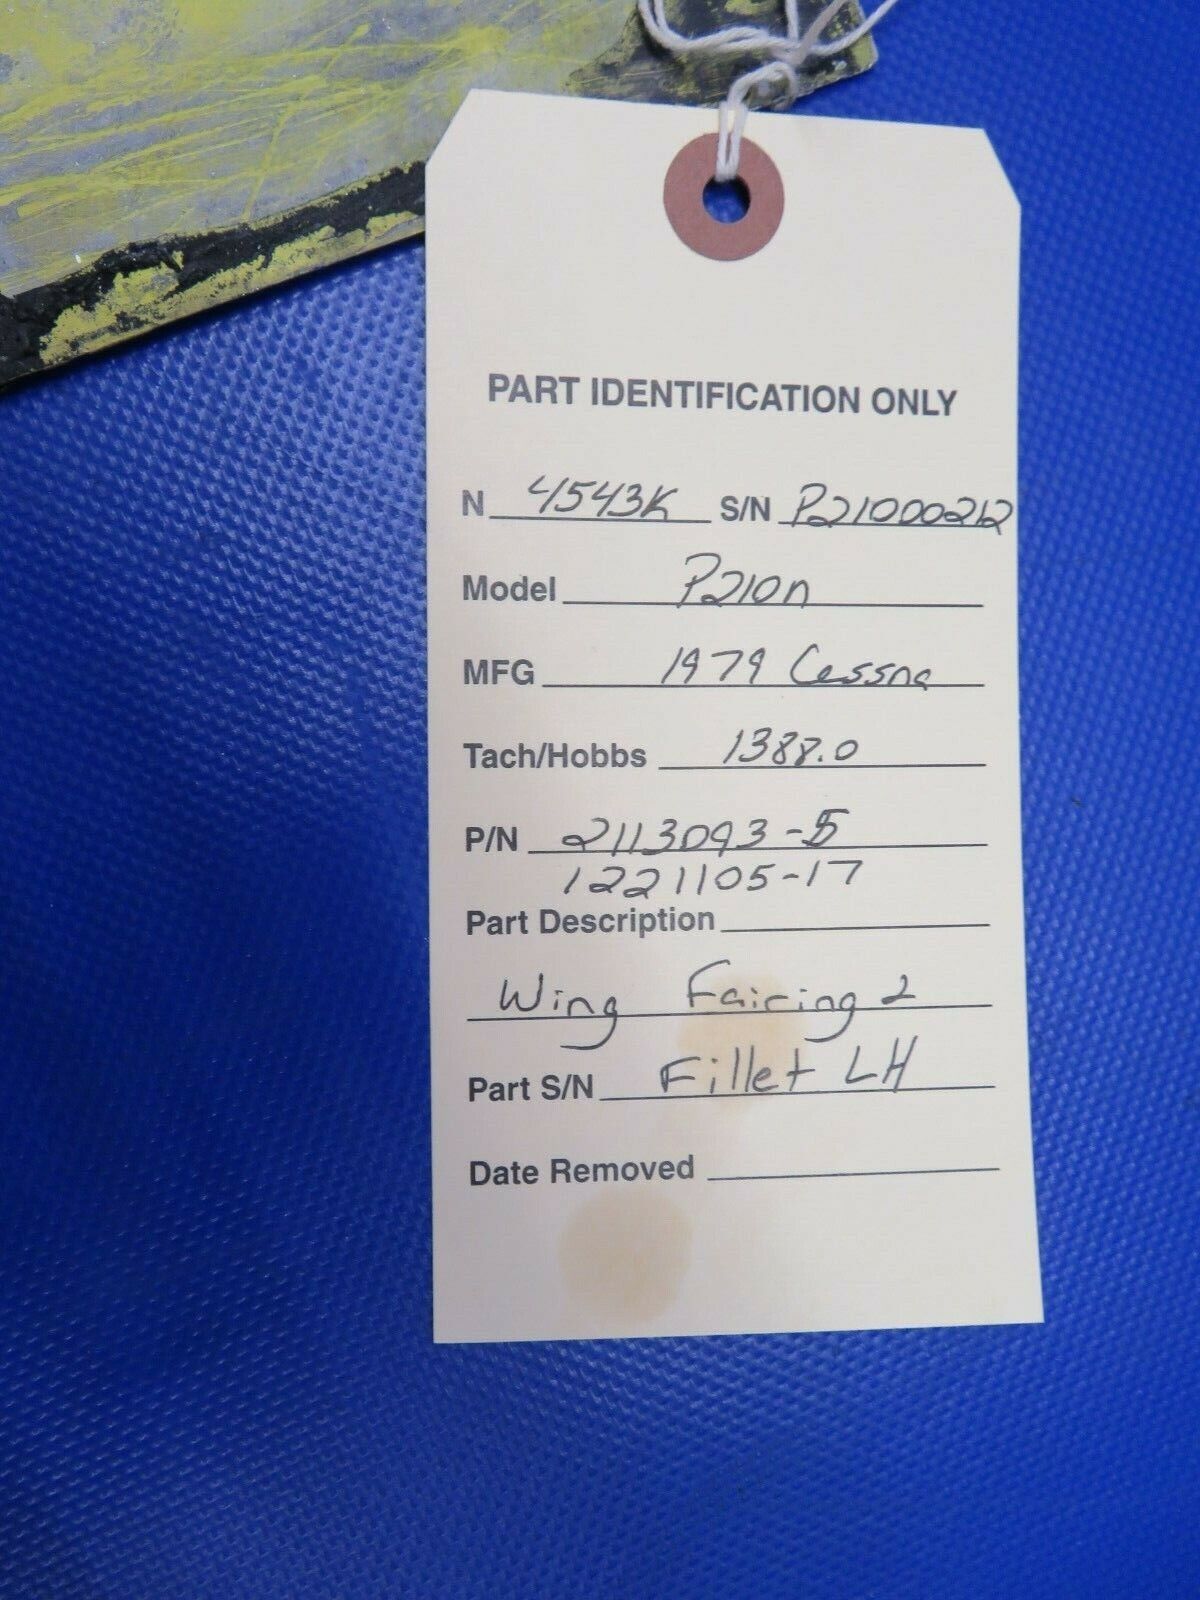 PART IDENTIFICATION ONLY
N 4543K S/N P21000212
Model P210n
MFG 1979 Cessna
Tach/Hobbs 1388.0
P/N 2113093-5
1221105-17
Part Description
Wing Fairing 2
Part S/N Fillet LH
Date Removed